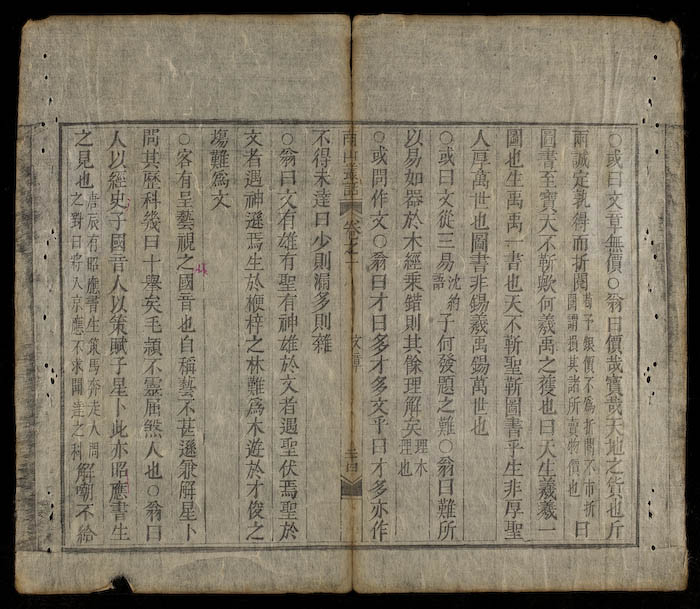 ○或曰文章無價○翁曰價哉寶哉天地之貨也斤
兩誠定孰得而折閱荀子銀價不為折閱不市折閱謂損其諸所賣物價也曰
圖書至寶天不靳歟何羲禹之獲也曰天生羲羲一
圖也生禹禹一書也天不靳聖靳圖書乎生非厚聖
人厚萬世也圖書非錫羲禹錫萬世也
○或曰文從三易沈約語子何發題之難○翁曰難所
以易如器於木經乘錯則其餘理解矣理木理也
○或問作文○翁曰才曰多才多文乎曰才多亦作
不得未達曰少則漏多則雜
卷之一
文章
○翁曰文有雄有聖有神雄於文者遇聖伏焉聖於
文者遇神遜焉生於楩梓之林難為木遊於才俊之
塲難為文
○客有呈藝視之國音也自稱藝不甚遜兼解星卜
問其歷科幾曰十舉矣毛穎不靈屈煞人也○翁曰
人以經史子國音人以策賦子星卜此亦昭應書生
之見也唐辰有昭應書生策馬奔走人問之對曰將入京應不求聞達之科解嘲不給